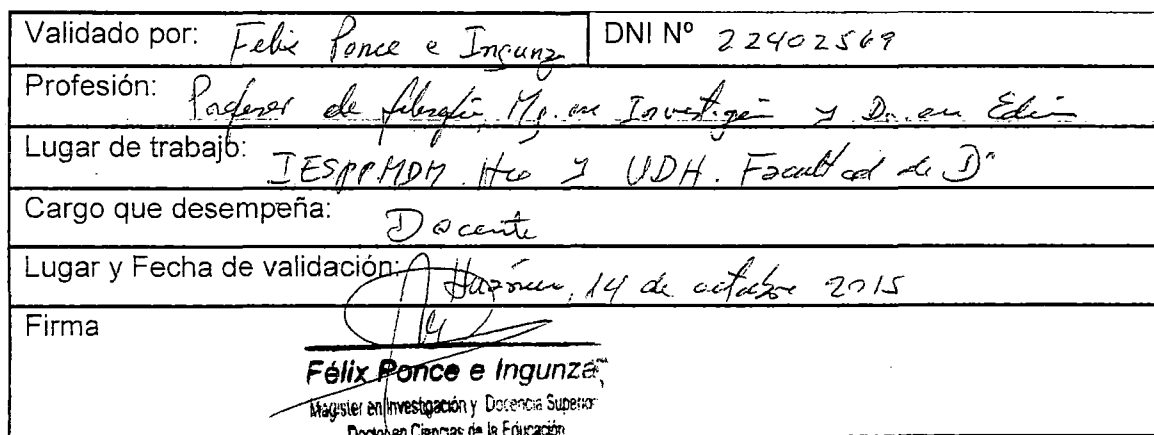 Validado por: Felix Ponce e Ingunza DNI Nº 22402569
Profesión: Profesor de filosofía, Mg. en Investigón y Dr. en Edión
Lugar de trabajo: IESPPMDM. Hco y UDH. Facultad de D"
Cargo que desempeña: Docente
Lugar y Fecha de validación: Huánuco, 14 de octubre 2015
Firma
Félix Ponce e Ingunza
Magister en Investigación y Docencia Superior
Doctor en Ciencias de la Educación